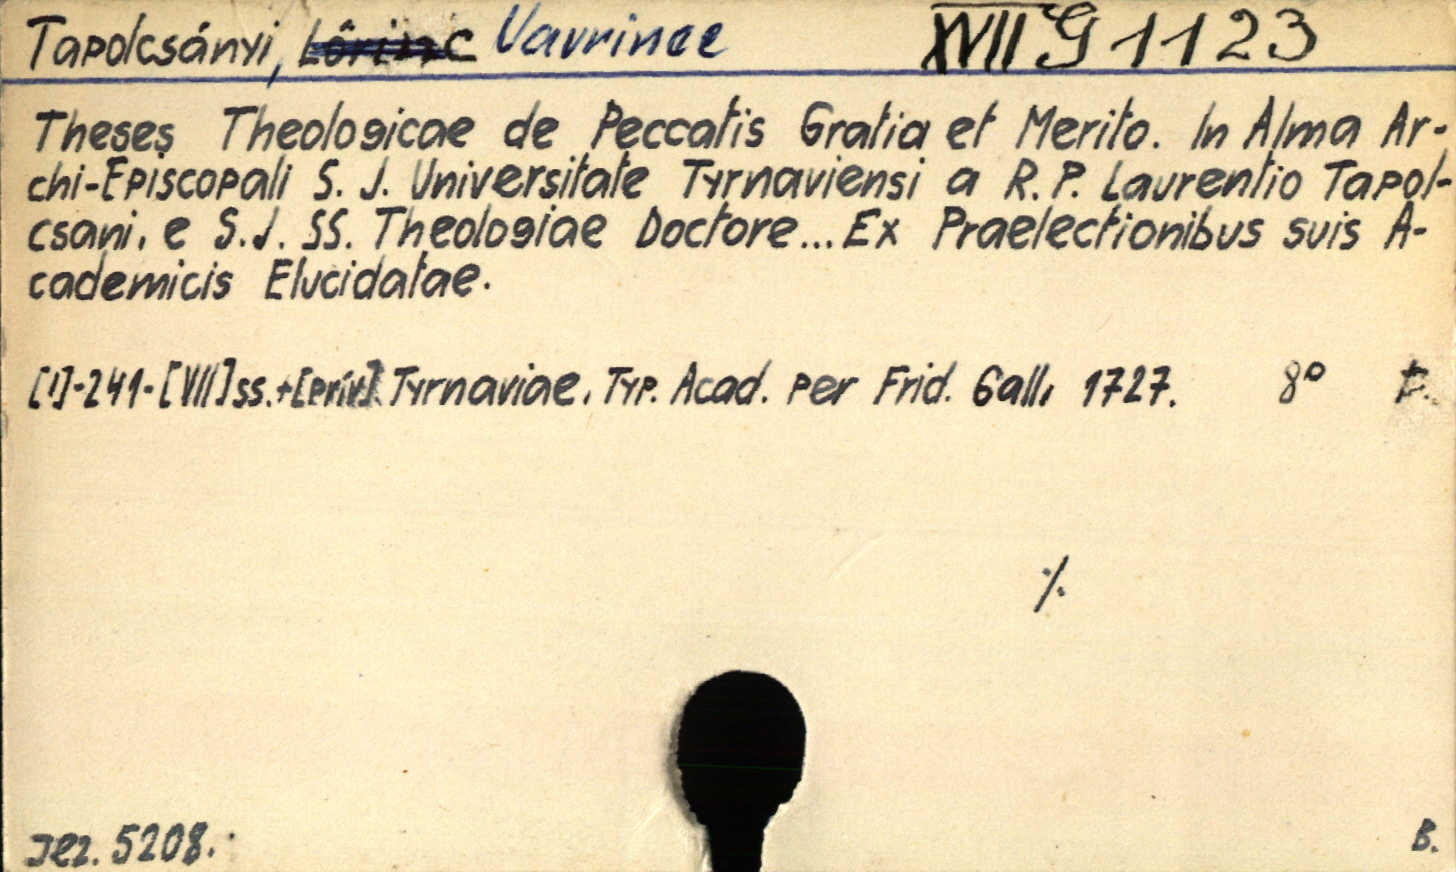 Tapolcsányi, Lőrinc Vavrinec XVII G 1123
Theses Theologicae de Peccatis Gratia et Merito. In Alma Ar-
chi-Episcopali S. J. Universitate Tyrnaviensi a R. P. Laurentio Tapol-
csani, e S. J. SS. Theologiae Doctore... Ex Praelectionibus suis A-
cademicis Elucidatae.
[I]-241-[VII] ss. +[prív]. Tyrnaviae, Typ. Acad. per Frid. Gall, 1727. 8°
%
Jez. 5208.
B.